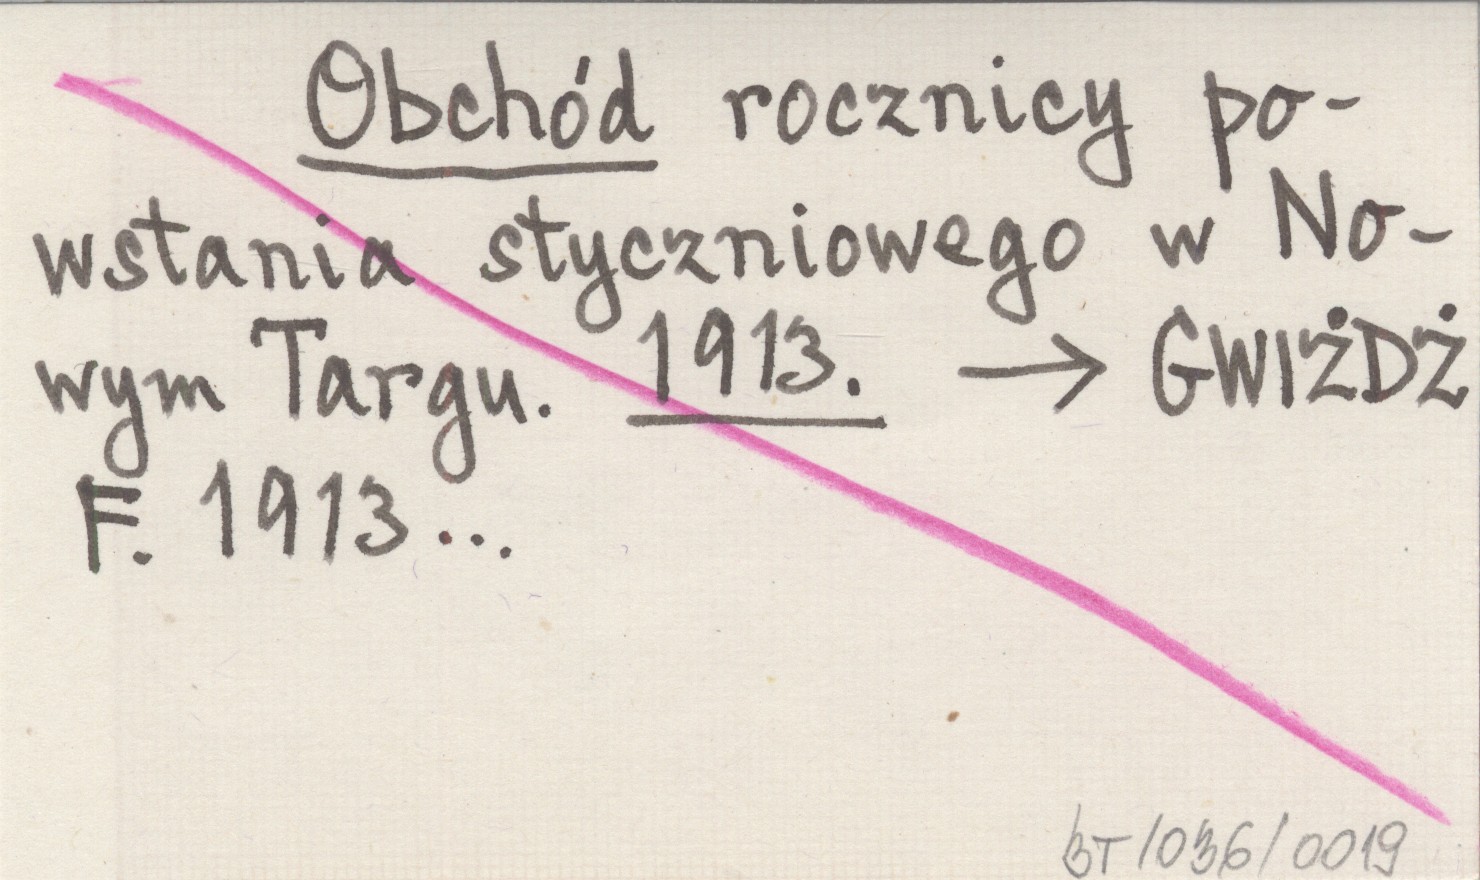 Obchód rocznicy po-
wstania styczniowego w No-
wym Targu. 1913. → GWIŻDŻ
F. 1913...
BT/036/0019